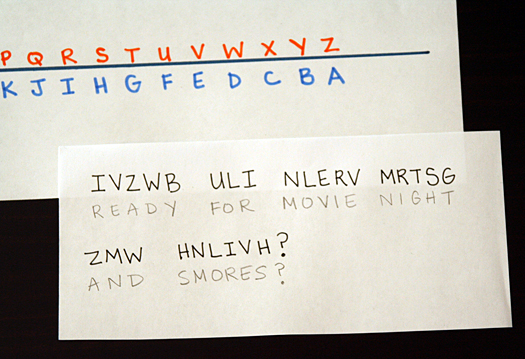 P Q R S T U V W X Y Z
K J I H G F E D C B A
IVZWB ULI NLERV MRTSG
READY FOR MOVIE NIGHT
ZMW HNLIVH?
AND SMORES?